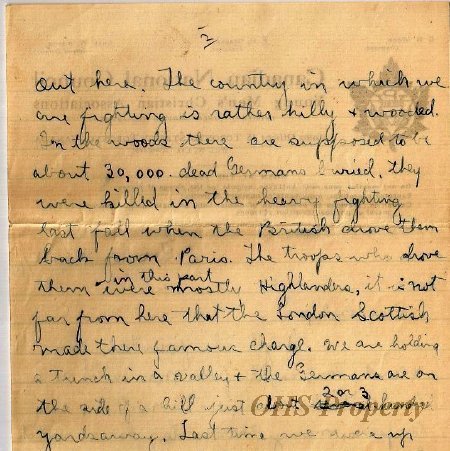 2
out here. The country in which we
are fighting is rather hilly + wooded.
In the woods there are supposed to be
about 30,000 dead Germans buried. They
were killed in the heavy fighting
last fall when the British drove them
back from Paris. The troops who drove
them in this part were mostly Highlanders, it is not
far from here that the London Scottish
made there famous charge. We are holding
a trench in a valley + the Germans are on
the side of a hill just 2 or 3
yards away. Last time we were up
OHS Property
Canadian National Council
Young Men's Christian Associations